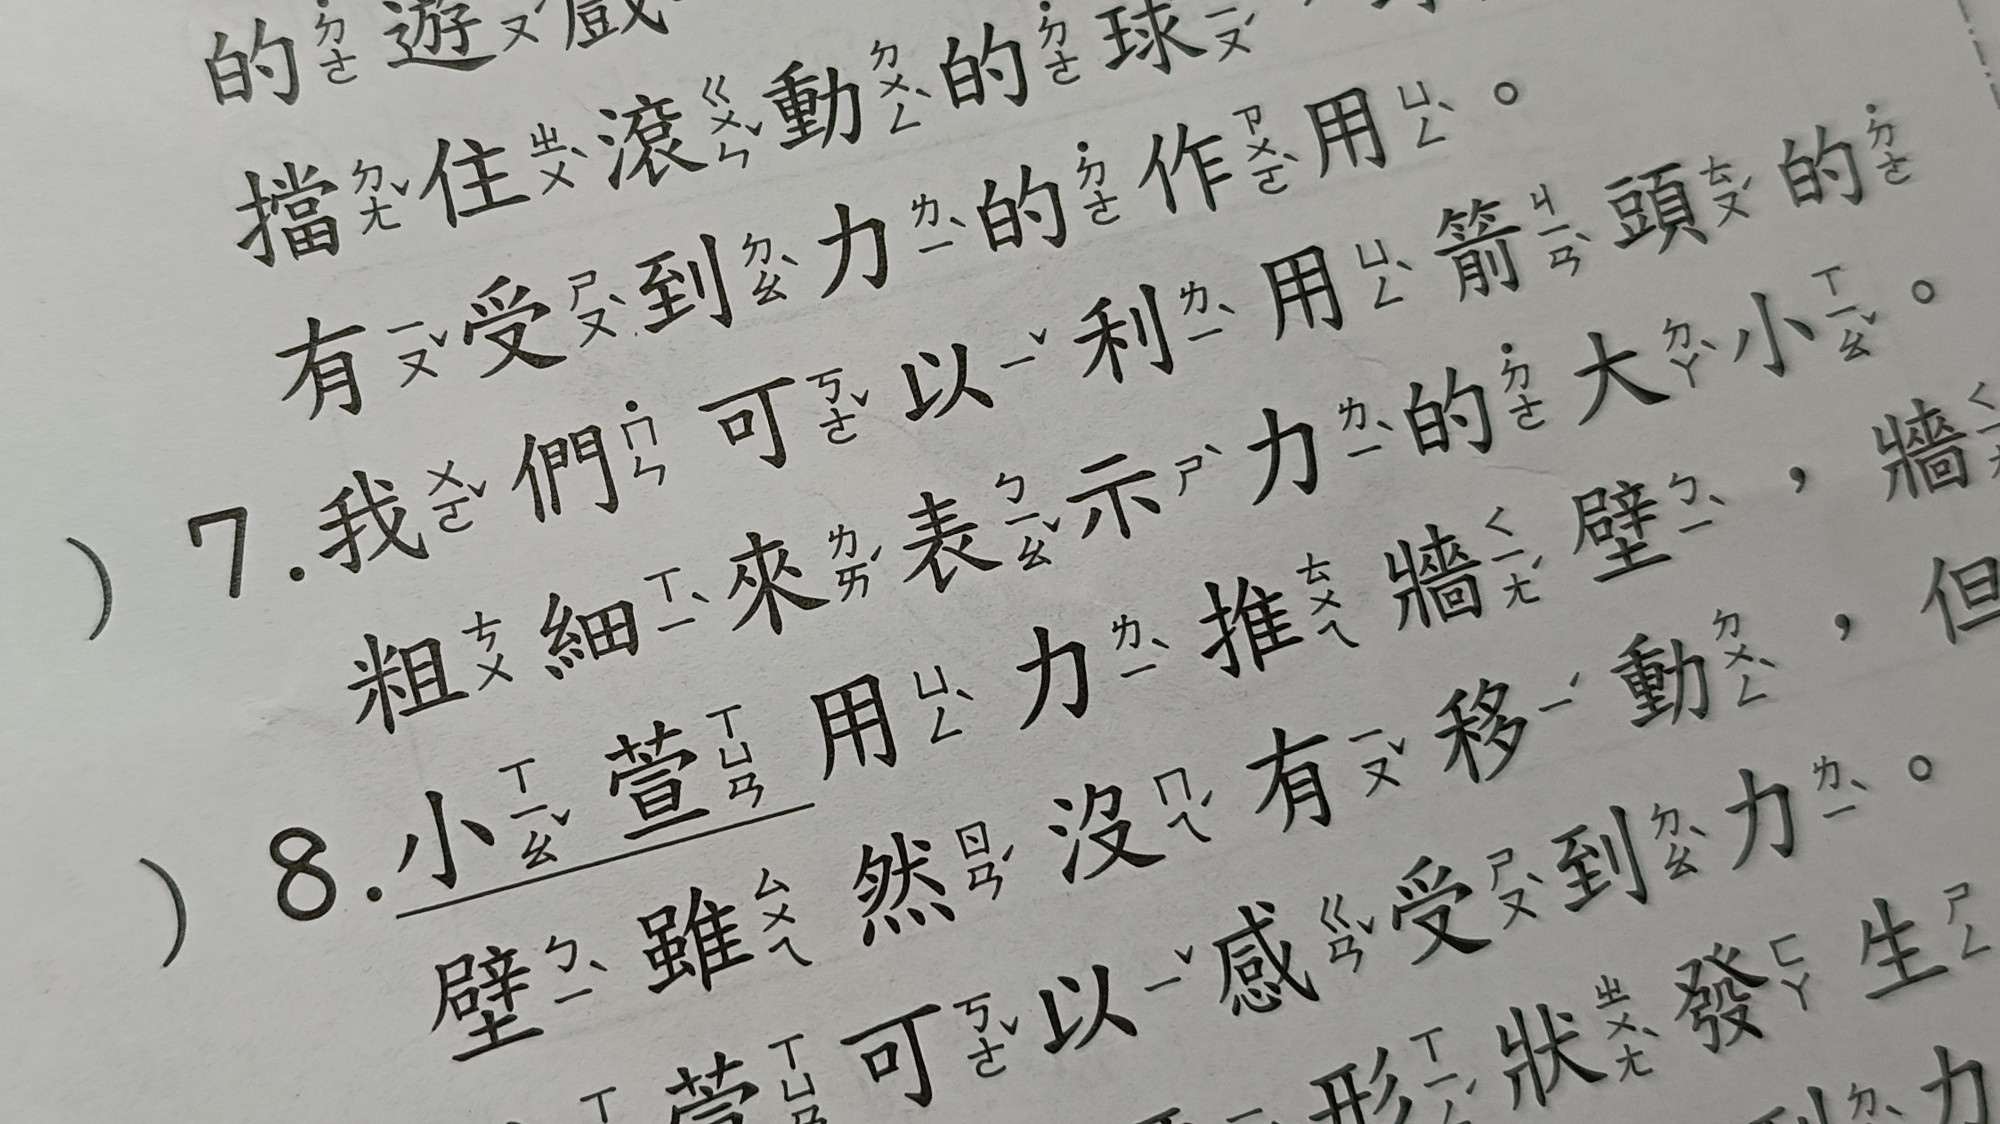 的遊戲
擋住滾動的球，
有受到力的作用。
) 7.我們可以利用箭頭的
粗細來表示力的大小。
) 8.小萱用力推牆壁，牆
壁雖然沒有移動，但
萱可以感受到力。
形狀發生
到力